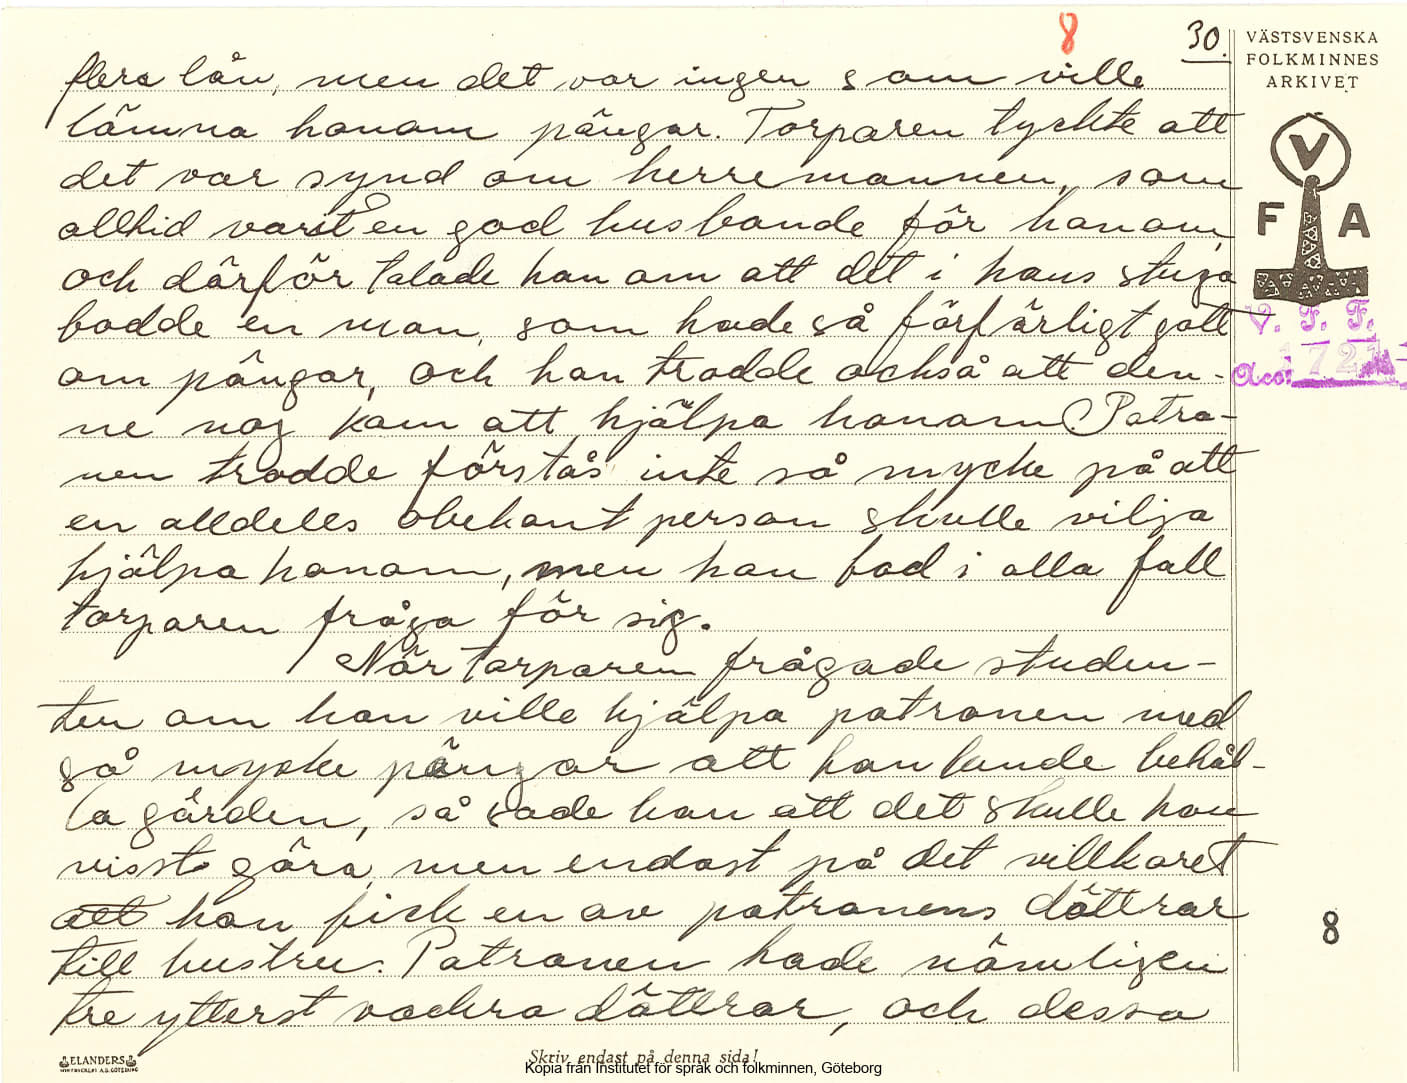 8
30.
VÄSTSVENSKA
FOLKMINNES
ARKIVET
V
F A
V. F. F.
Acc: 1721
flera lån, men det var ingen som ville
lämna honom pängar. Torparen tyckte att
det var synd om herremannen, som
alltid varit en god husbonde för honom,
och därför talade han om att det i hans stuga
bodde en man, som hade så förfärligt gott
om pängar, och han trodde också att den-
ne nog kom att hjälpa honom. Patro-
nen trodde förstås inte så mycke på att
en alldeles obekant person skulle vilja
hjälpa honom, men han bad i alla fall
torparen fråga för sig.
När torparen frågade studen-
ten om han ville hjälpa patronen med
så mycke pängar att han kunde behål-
la gården, så sade han att det skulle han
visst göra, men endast på det villkoret
att han fick en av patronens döttrar
till hustru. Patronen hade nämligen
tre ytterst vackra döttrar, och dessa
8
ELANDERS
Skriv endast på denna sida!
Kopia från Institutet för språk och folkminnen, Göteborg